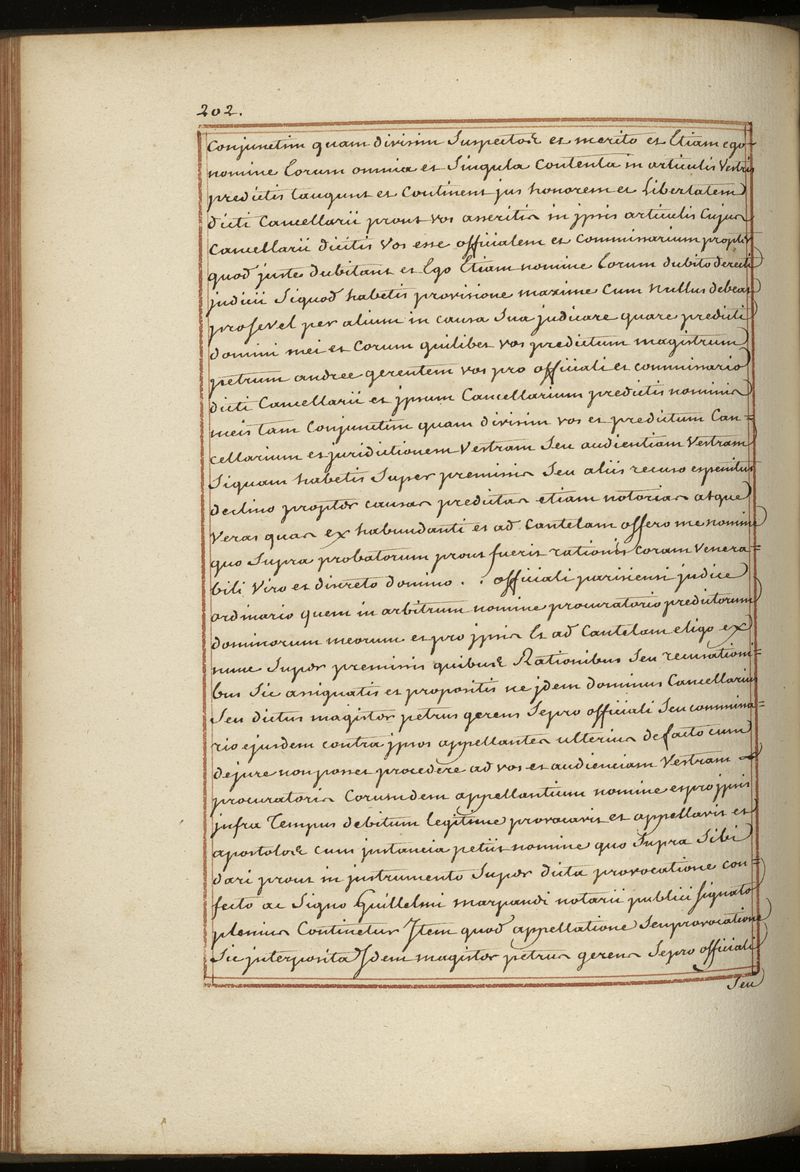 202.
Conjunctim quam divisim Suspectos et merito et Etiam ego
nomine Eorum omnia et Singula Contenta in articulis Vestris
predictis tangunt et Continent jus honorem et Libertatem
dicti Cancellarii prout vos asseritis in jpsis articulis Cujus
Cancellarii dicitis Vos esse officialem et Commissarium propter
quod juste dubitant et Ego Etiam nomine Eorum dubito de recti
judicii Siquod habetis provisione maxime Cum Nullus debeat
pro se vel per alium in causa Sua judicare quare predicti
domini mei et Eorum quilibet vos predictum magistrum
petrum andree gerentem vos pro officiali et commissario
dicti Cancellarii et jpsum Cancellarium predictis nominis
meis tam Conjunctim quam divisim vos et predictum Can=
cellarium et juridictionem Vestram Seu audientiam Vestram
Siquam habetis Super premissis Seu aliis recuso et penitus
declino propter causas predictas etiam notorias atque
Veras quas ex habundanti et ad Cantelam offero me nomine
quo Supra probatorum prout fuerit rationis Coram Venera=
bili Viro et discreto domino . . officiali parisiensi judice
ordinario quem in arbitrum nomine procuratorio predictorum
dominorum meorum et pro jpsis Et ad Cantelam eligo ex
nunc Super premissis quibus Rationibus Seu recusationi=
bus Sic assignatis et propositis ne jdem dominus Cancellarius
Seu dictus magister petrus gerens Sepro officiali Seu commissa=
rio ejusdem contra jpsos appellantes ulterius de facto cum
dejure non posset procedere ad vos et audienciam Vestram
procuratoris Eorumdem appellantium nomine et pro jpsis
jnfra Tempus debitum legitime provocavit et appellavit et
apostolos cum jnstancia petiit nomine quo Supra Sibi
dari prout in jnstrumento Super dicta provocatione con=
fecto ac Signo Guillelmi marpandi notarii publici signato
plenius Continetur Jtem quod appellatione Seu provocatione
Sic jnterposita Jdem magister petrus gerens Sepro officiali
Seu